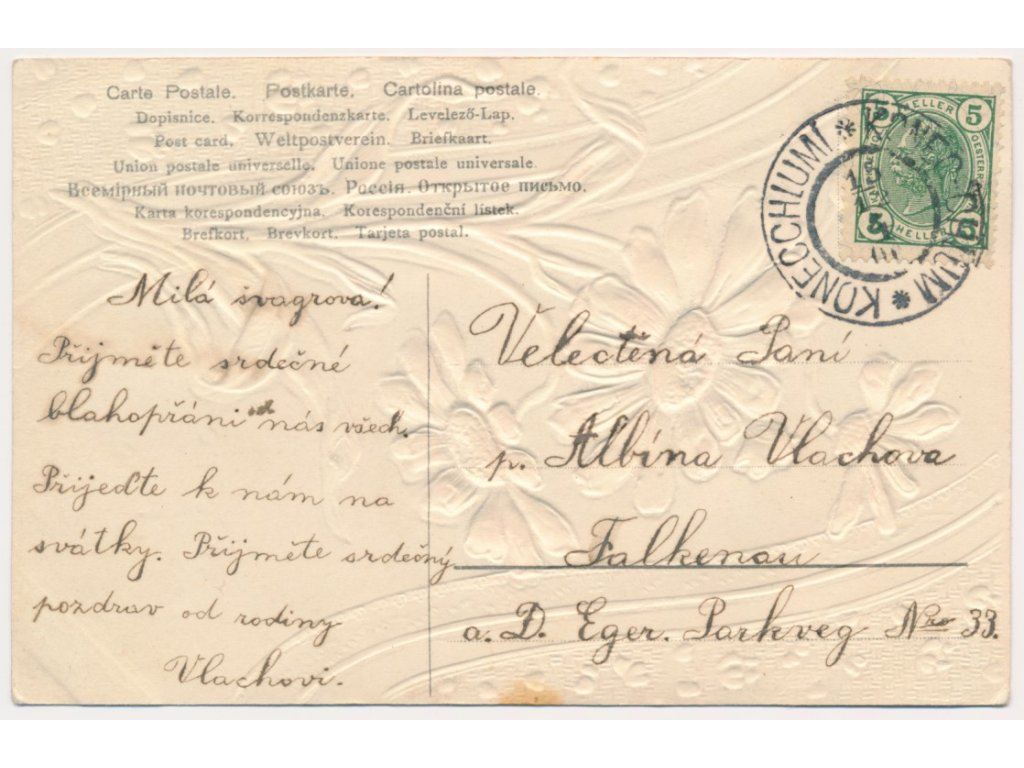 Carte Postale. Postkarte. Cartolina postale.
Dopisnice. Korrespondenzkarte. Levelező-Lap.
Post card. Weltpostverein. Briefkaart.
Union postale universelle. Unione postale universale.
Всемірный почтовый союзъ. Россія. Открытое письмо.
Karta korespondencyjna. Korespondenční lístek.
Brefkort. Brevkort. Tarjeta postal.
Milá švagrova!
Přijměte srdečné
blahopřáni od nás všech.
Prijeďte k nám na
svátky. Přijměte srdečný
pozdrav od rodiny
Vlachovi.
5 HELLER 5
5 HELLER 5
KONECCHLUM
KONECCHLUMÍ
Velectěná Paní
p. Albína Vlachova
Falkenau
a. D. Eger. Parkveg Nro 33.